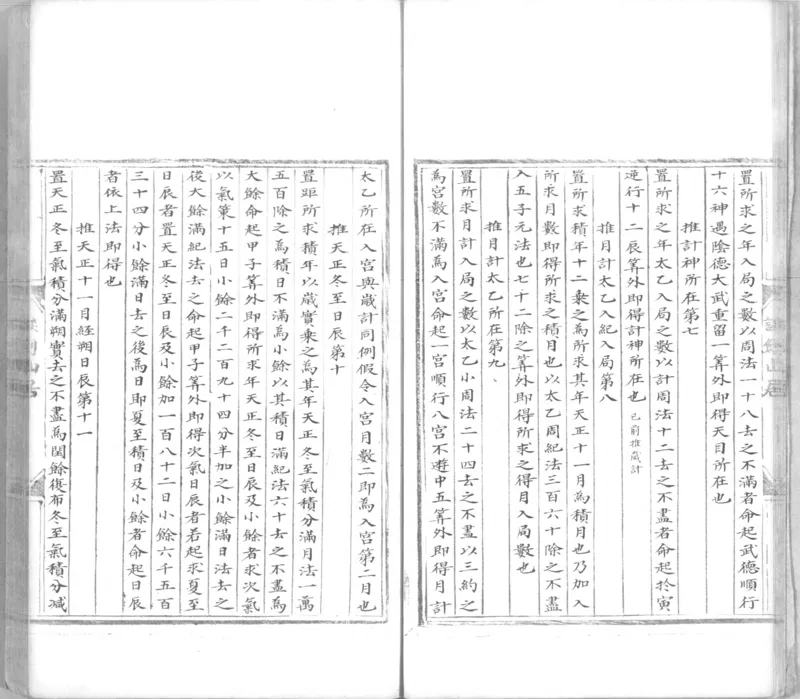 置所求之年入局之數以周法一十八去之不滿者命起武德順行
十六神遇陰德大武重留一算外即得天目所在也
推計神所在第七
置所求之年太乙入局之數以計周法十二去之不盡者命起於寅
逆行十二辰算外即得計神所在也 已前推歲計
推月計太乙入紀入局第八
置所求積年十二乘之為所求其年天正十一月為積月也乃加入
所求月數即得所求之積月也以太乙周紀法三百六十除之不盡
入五子元法也七十二除之算外即得所求之得月入局數也
推月計太乙所在第九、
置所求月計入局之數以太乙小周法二十四去之不盡以三約之
為宮數不滿為入宮命起一宮順行八宮不遊中五算外即得月計
太乙所在入宮與歲計同例假令入宮月數二即為入宮第二月也
推天正冬至日辰第十
置距所求積年以歲實乘之為其年天正冬至氣積分滿月法一萬
五百除之為積日不滿為小餘以其積日滿紀法六十去之不盡為
大餘命起甲子算外即得所求年天正冬至日辰及小餘者求次氣
以氣策十五日小餘二千二百九十四分半加之小餘滿日法去之
後大餘滿紀法去之命起甲子算外即得次氣日辰者若起求夏至
日辰者置天正冬至日辰及小餘加一百八十二日小餘六千五百
三十四分小餘滿日去之後為日即夏至積日及小餘者命起日辰
者依上法即得也
推天正十一月經朔日辰第十一
置天正冬至氣積分滿朔實去之不盡為閏餘復布冬至氣積分減